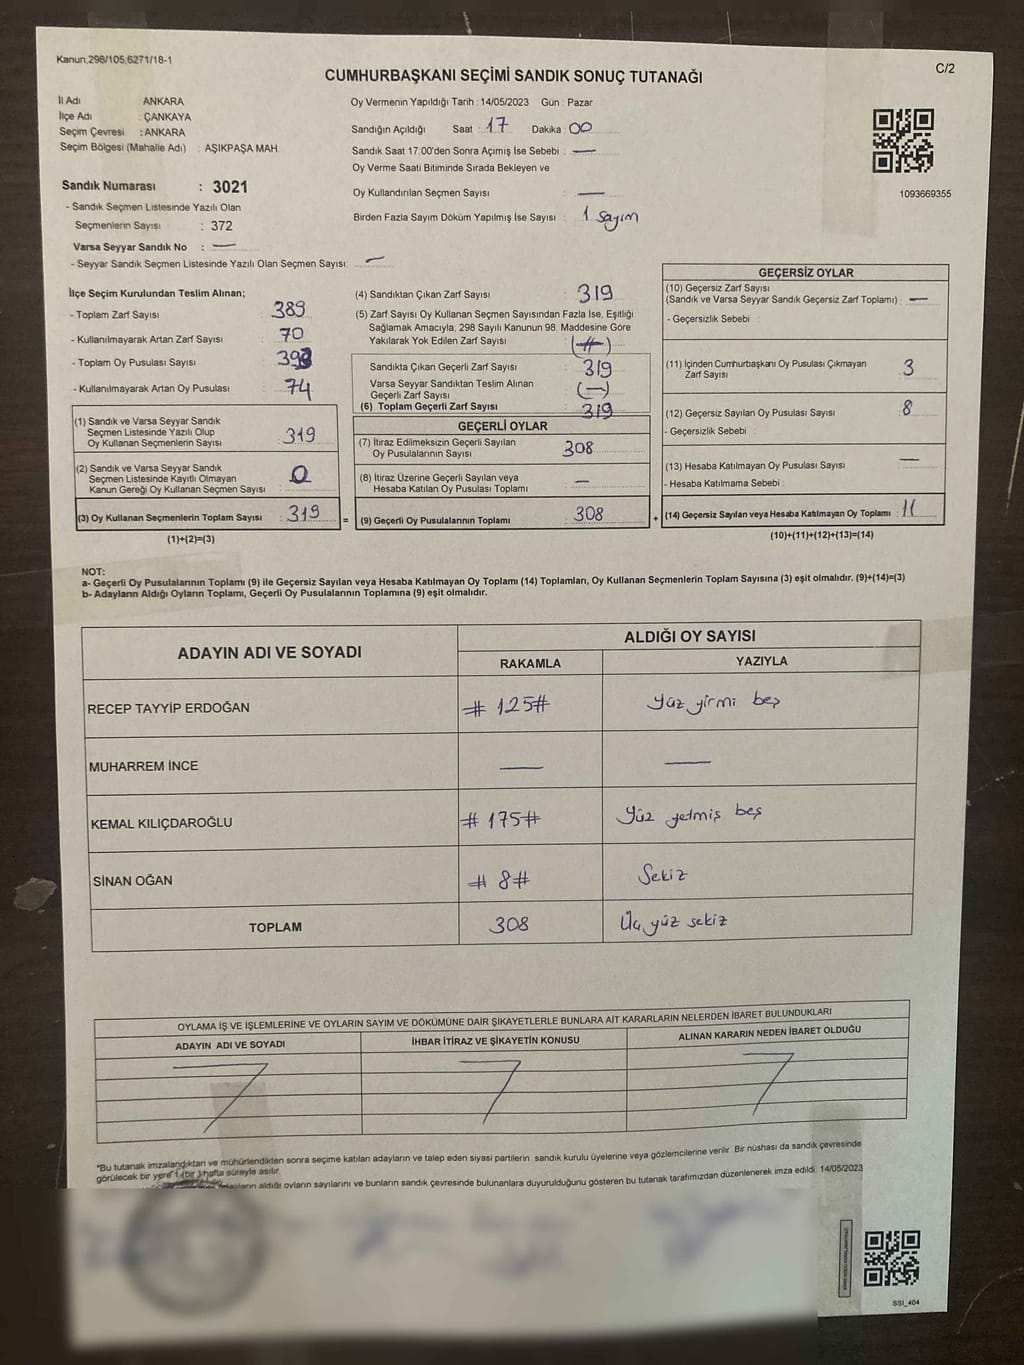 Kanun:298/105,6271/18-1
C/2
CUMHURBAŞKANI SEÇİMİ SANDIK SONUÇ TUTANAĞI
İl Adı : ANKARA
İlçe Adı : ÇANKAYA
Seçim Çevresi : ANKARA
Seçim Bölgesi (Mahalle Adı) : AŞIKPAŞA MAH.
Sandık Numarası : 3021
- Sandık Seçmen Listesinde Yazılı Olan
Seçmenlerin Sayısı : 372
Varsa Seyyar Sandık No : —
- Seyyar Sandık Seçmen Listesinde Yazılı Olan Seçmen Sayısı: —
Oy Vermenin Yapıldığı Tarih : 14/05/2023 Gün : Pazar
Sandığın Açıldığı Saat : 17 Dakika : 00
Sandık Saat 17:00'den Sonra Açımış İse Sebebi : —
Oy Verme Saati Bitiminde Sırada Bekleyen ve
Oy Kullandırılan Seçmen Sayısı : —
Birden Fazla Sayım Döküm Yapılmış İse Sayısı : 1 sayım
1093669355
İlçe Seçim Kurulundan Teslim Alınan;
- Toplam Zarf Sayısı : 389
- Kullanılmayarak Artan Zarf Sayısı : 70
- Toplam Oy Pusulası Sayısı :
- Kullanılmayarak Artan Oy Pusulası : 74
(1) Sandık ve Varsa Seyyar Sandık
Seçmen Listesinde Yazılı Olup
Oy Kullanan Seçmenlerin Sayısı : 319
(2) Sandık ve Varsa Seyyar Sandık
Seçmen Listesinde Kayıtlı Olmayan
Kanun Gereği Oy Kullanan Seçmen Sayısı : 0
(3) Oy Kullanan Seçmenlerin Toplam Sayısı : 319 =
(1)+(2)=(3)
(4) Sandıktan Çıkan Zarf Sayısı : 319
(5) Zarf Sayısı Oy Kullanan Seçmen Sayısından Fazla İse, Eşitliği
Sağlamak Amacıyla, 298 Sayılı Kanunun 98. Maddesine Göre
Yakılarak Yok Edilen Zarf Sayısı :
Sandıkta Çıkan Geçerli Zarf Sayısı : 319
Varsa Seyyar Sandıktan Teslim Alınan
Geçerli Zarf Sayısı : (—)
(6) Toplam Geçerli Zarf Sayısı : 319
GEÇERLİ OYLAR
(7) İtiraz Edilmeksizin Geçerli Sayılan
Oy Pusulalarının Sayısı : 308
(8) İtiraz Üzerine Geçerli Sayılan veya
Hesaba Katılan Oy Pusulası Toplamı : —
(9) Geçerli Oy Pusulalarının Toplamı : 308 +
GEÇERSİZ OYLAR
(10) Geçersiz Zarf Sayısı
(Sandık ve Varsa Seyyar Sandık Geçersiz Zarf Toplamı) : —
- Geçersizlik Sebebi :
(11) İçinden Cumhurbaşkanı Oy Pusulası Çıkmayan
Zarf Sayısı : 3
(12) Geçersiz Sayılan Oy Pusulası Sayısı : 8
- Geçersizlik Sebebi :
(13) Hesaba Katılmayan Oy Pusulası Sayısı : —
- Hesaba Katılmama Sebebi :
(14) Geçersiz Sayılan veya Hesaba Katılmayan Oy Toplamı : 11
(10)+(11)+(12)+(13)=(14)
NOT:
a- Geçerli Oy Pusulalarının Toplamı (9) ile Geçersiz Sayılan veya Hesaba Katılmayan Oy Toplamı (14) Toplamları, Oy Kullanan Seçmenlerin Toplam Sayısına (3) eşit olmalıdır. (9)+(14)=(3)
b- Adayların Aldığı Oyların Toplamı, Geçerli Oy Pusulalarının Toplamına (9) eşit olmalıdır.
ADAYIN ADI VE SOYADI
ALDIĞI OY SAYISI
RAKAMLA YAZIYLA
RECEP TAYYİP ERDOĞAN # 125# Yüz yirmi beş
MUHARREM İNCE — —
KEMAL KILIÇDAROĞLU # 175# Yüz yetmiş beş
SİNAN OĞAN # 8# Sekiz
TOPLAM 308 Üç yüz sekiz
OYLAMA İŞ VE İŞLEMLERİNE VE OYLARIN SAYIM VE DÖKÜMÜNE DAİR ŞİKAYETLERLE BUNLARA AİT KARARLARIN NELERDEN İBARET BULUNDUKLARI
ADAYIN ADI VE SOYADI İHBAR İTİRAZ VE ŞİKAYETİN KONUSU ALINAN KARARIN NEDEN İBARET OLDUĞU
*Bu tutanak imzalandıktan ve mühürlendikten sonra seçime katılan adayların ve talep eden siyasi partilerin sandık kurulu üyelerine veya gözlemcilerine verilir. Bir nüshası da sandık çevresinde
görülecek bir yere 1 (bir) hafta süreyle asılır.
aldığı oyların sayılarını ve bunların sandık çevresinde bulunanlara duyurulduğunu gösteren bu tutanak tarafımızdan düzenlenerek imza edildi. 14/05/2023
SSI_404